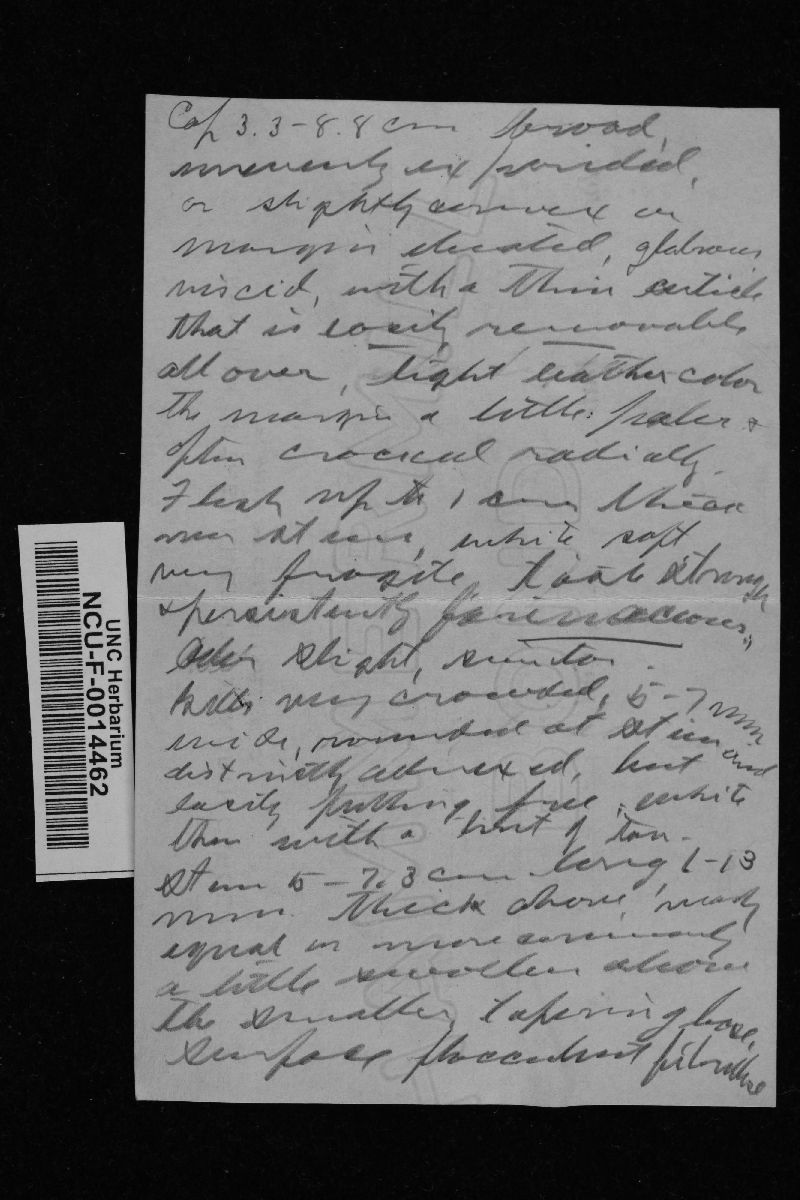 Cap 3.3-8.8 cm broad,
unevenly expanded,
or slightly convex or
margin elevated, glabrous,
viscid, with a thin cuticle
that is easily removable
all over, light leather color
the margin a little paler &
often cracked radially.
Flesh up to 1 cm thick
near stem, white soft
very fragile, taste strongly
& persistently farinaceous,
Odor slight, similar.
Gills very crowded, 5-7 mm
wide, rounded at stem and
distinctly adnexed, but
easily pulling free, white
then with a hint of tan.
Stem 5-7.3 cm long, 1-1.3
mm. thick above, nearly
equal or more commonly
a little swollen above
the smaller, tapering base,
surface flocculent fibrillose
UNC Herbarium
NCU-F-0014462